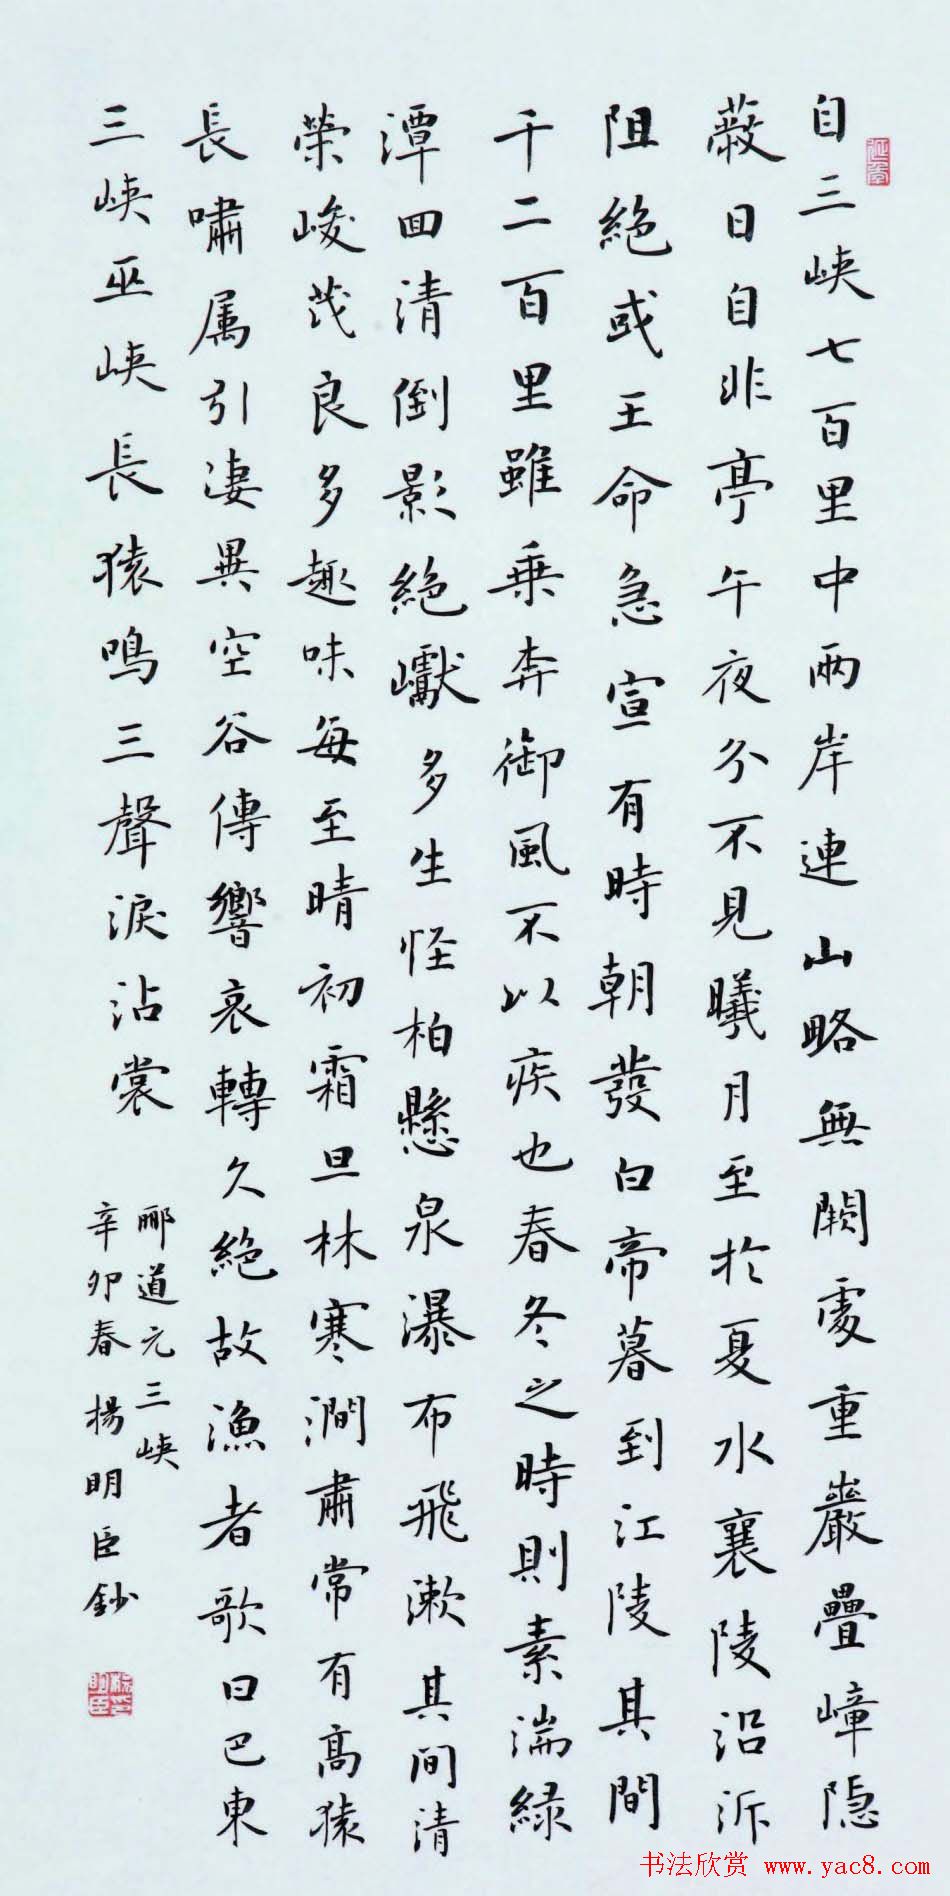 自三峡七百里中兩岸連山略無闕處重巖疊嶂隐
蔽日自非亭午夜分不見曦月至於夏水襄陵沿泝
阻絶或王命急宣有時朝發白帝暮到江陵其間
千二百里雖乗奔御風不以疾也春冬之時則素湍緑
潭回清倒影絶巘多生怪柏懸泉瀑布飛漱其间清
榮峻茂良多趣味每至晴初霜旦林寒澗肅常有高猿
長嘯属引淒異空谷傳響哀轉久絶故漁者歌曰巴東
三峡巫峡長猿鳴三聲淚沾裳
酈道元三峡
辛卯春楊明臣鈔
书法欣赏 www.yac8.com